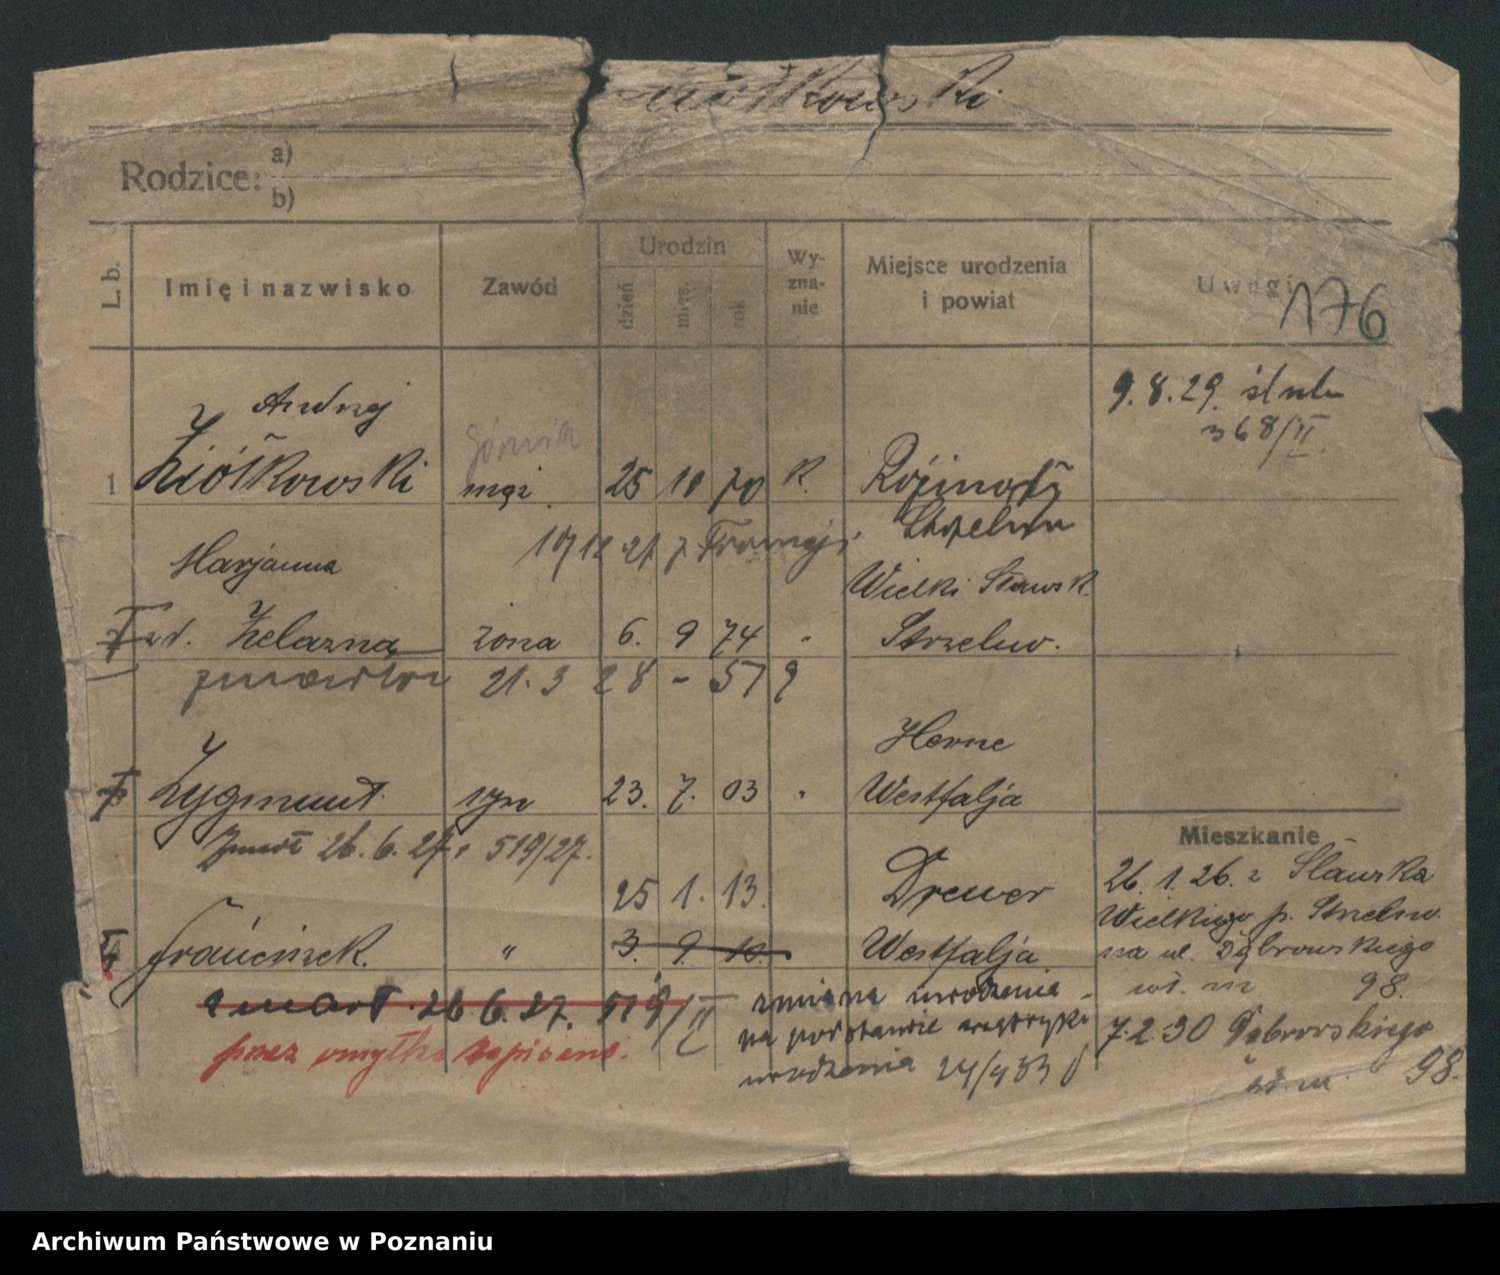 Ziółkowski
Rodzice:
a)
b)
L. b.
Imię i nazwisko
Zawód
Urodzin
dzień
mies.
rok
Wy-
zna-
nie
Miejsce urodzenia
i powiat
Uwagi
176
1
Andrzej
Ziółkowski
górnik
mąż
25 10 70 K.
9.8.29. ślub
368/II.
Strzelno
10/12 27 z Francji
Marjanna
zd. Żelazna
żona
6. 9 74 "
Wielki Sławsk
Strzelno.
zmarła 21.3 28 - 579
Zygmunt
syn
23. 7. 03 "
Herne
Westfalja
Zmarł 26.6.27. 519/27.
Franciszek.
"
25 1. 13.
3. 9. 10
Drewer
Westfalja
zmarł 26 6.27. 519/II
przez omyłkę zapisano.
zmiana urodzenia
na podstawie metryki
urodzenia 24/433
Mieszkanie
26.1.26. z Sławska
Wielkiego p. Strzelno
na ul. Dąbrowskiego
98.
7.2.30 Dąbrowskiego
98.
Archiwum Państwowe w Poznaniu